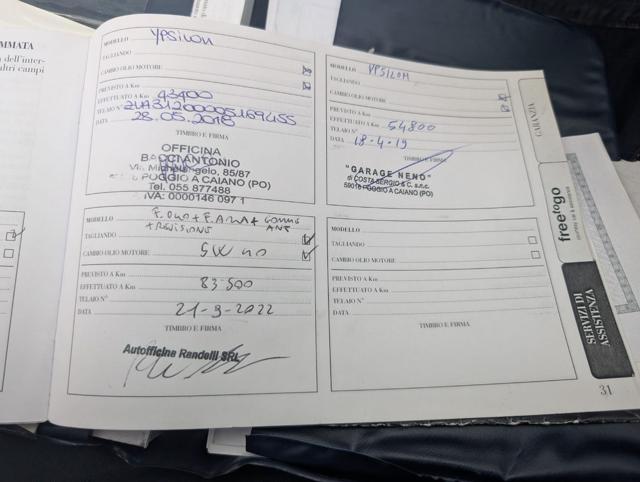 MMATA
dell'inter-
altri campi
MODELLO YPSILON
TAGLIANDO
CAMBIO OLIO MOTORE
PREVISTO A Km
EFFETTUATO A Km 43400
TELAIO N°
DATA 28.05.2018
TIMBRO E FIRMA
OFFICINA
BACCI ANTONIO
Via Michelangelo, 85/87
POGGIO A CAIANO (PO)
Tel. 055 877488
IVA: 0000146 097 1
MODELLO YPSILON
TAGLIANDO
CAMBIO OLIO MOTORE
PREVISTO A Km
EFFETTUATO A Km 54800
TELAIO N°
DATA 18-4-19
TIMBRO E FIRMA
"GARAGE NENO"
di COSTA SERGIO & C. s.n.c.
59016 POGGIO A CAIANO (PO)
MODELLO F. OLIO + F. ARIA +
TAGLIANDO
CAMBIO OLIO MOTORE 5W40
PREVISTO A Km
EFFETTUATO A Km 83500
TELAIO N°
DATA 21-9-2022
TIMBRO E FIRMA
Autofficina Randelli SRL
MODELLO
TAGLIANDO
CAMBIO OLIO MOTORE
PREVISTO A Km
EFFETTUATO A Km
TELAIO N°
DATA
TIMBRO E FIRMA
GARANZIA
freetogo
SERVIZI DI
ASSISTENZA
31